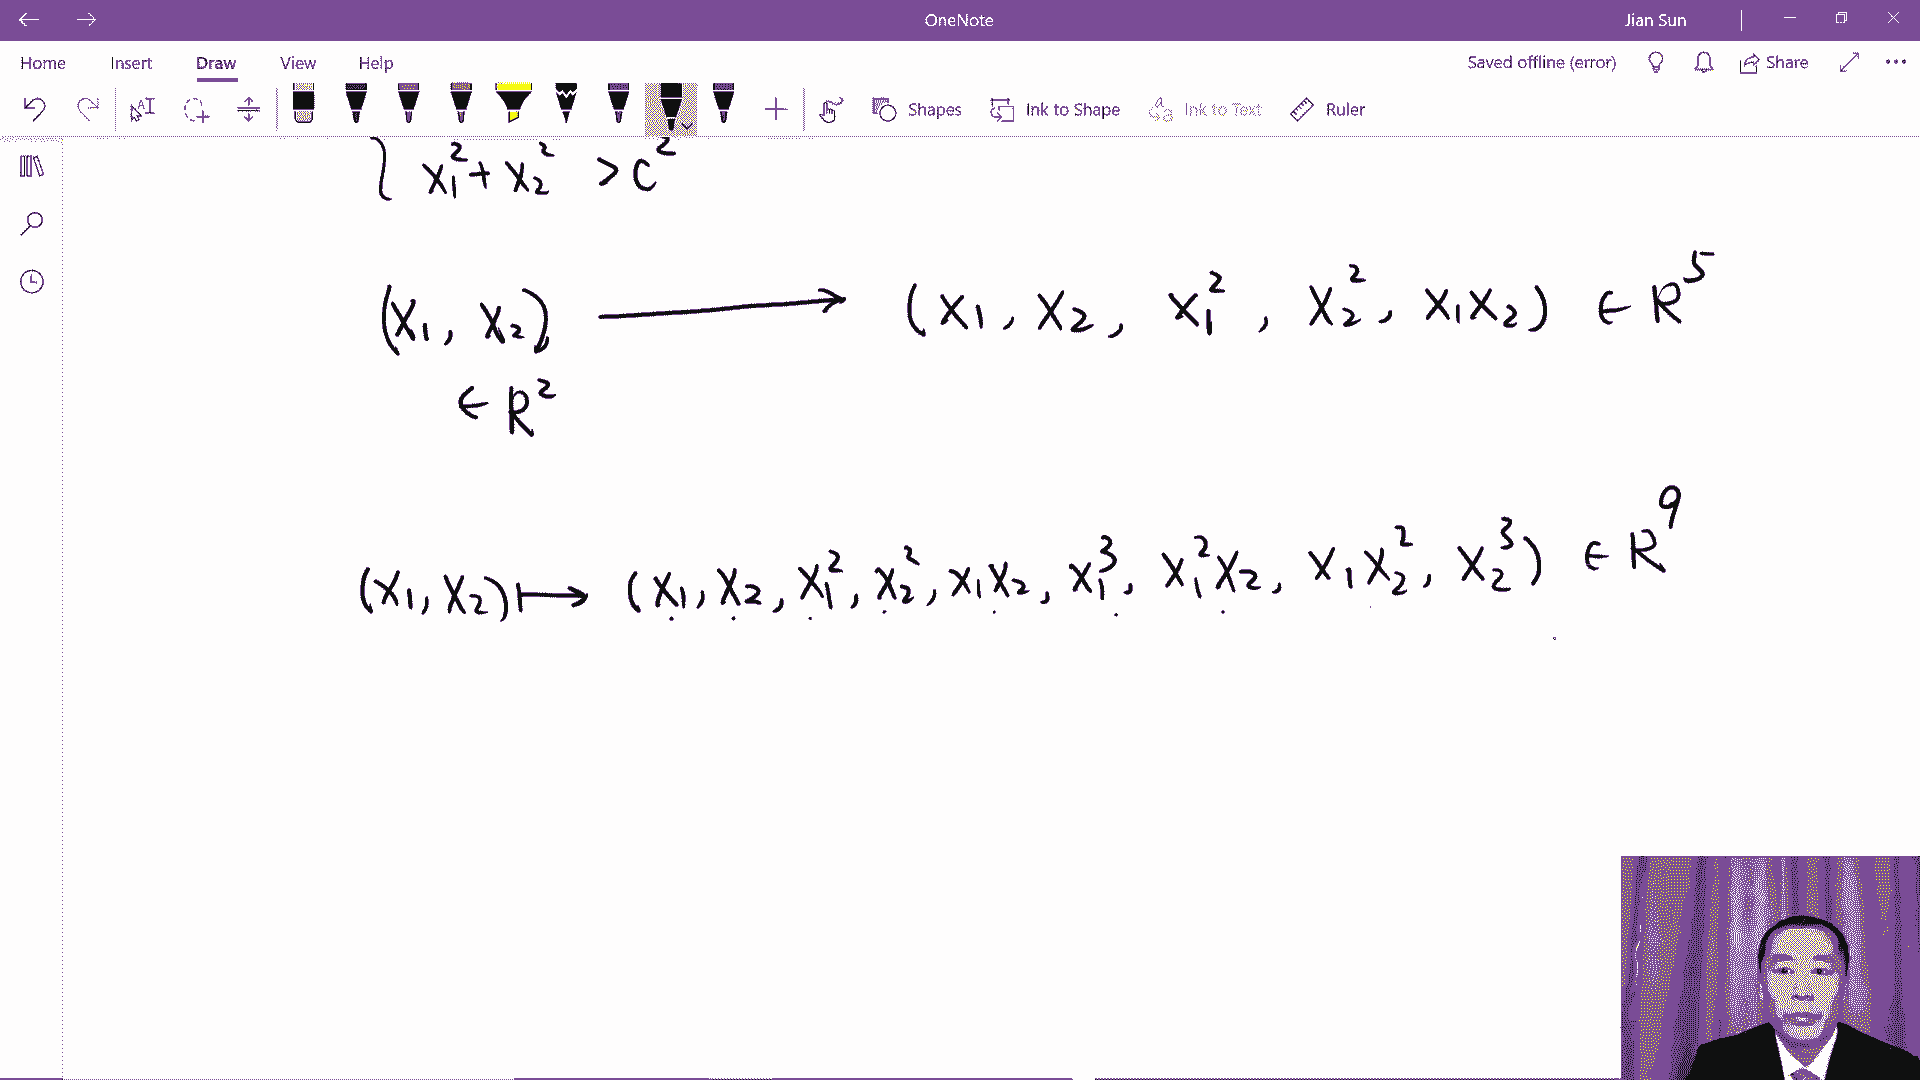 OneNote
Jian Sun
Home Insert Draw View Help
Saved offline (error) Share
Shapes Ink to Shape Ink to Text Ruler
{ x₁² + x₂² > c²
(x₁, x₂) ⟶ (x₁, x₂, x₁², x₂², x₁x₂) ∈ R⁵
∈ R²
(x₁, x₂) ↦ (x₁, x₂, x₁², x₂², x₁x₂, x₁³, x₁²x₂, x₁x₂², x₂³) ∈ R⁹